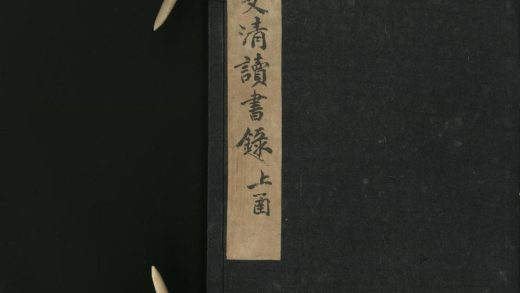 文清讀書錄 上函